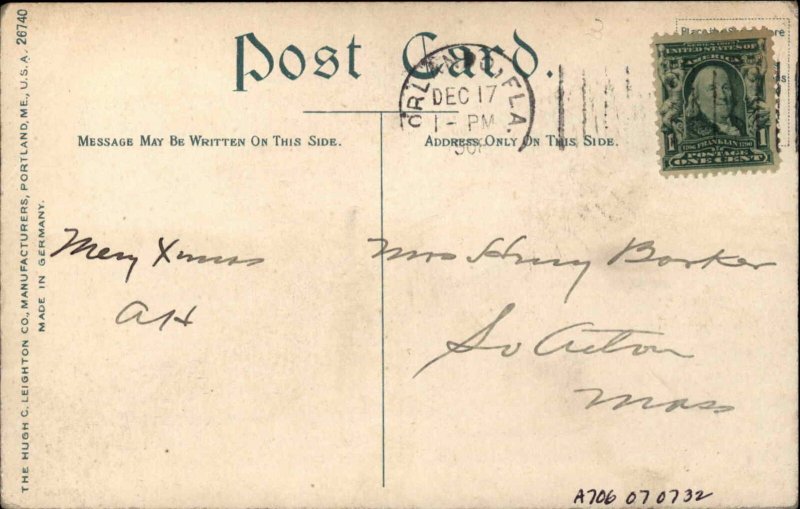 Post Card.
MESSAGE MAY BE WRITTEN ON THIS SIDE.
ADDRESS ONLY ON THIS SIDE.
ORLANDO, FLA.
DEC 17
1 - PM
SERIES 1902
UNITED STATES OF
AMERICA
1706 FRANKLIN 1790
1 1
POSTAGE
ONE CENT
Merry Xmas
AH
Mrs Henry Barker
So Acton
Mass
THE HUGH C. LEIGHTON CO., MANUFACTURERS, PORTLAND, ME., U.S.A. 26740
MADE IN GERMANY.
A706 07 0732